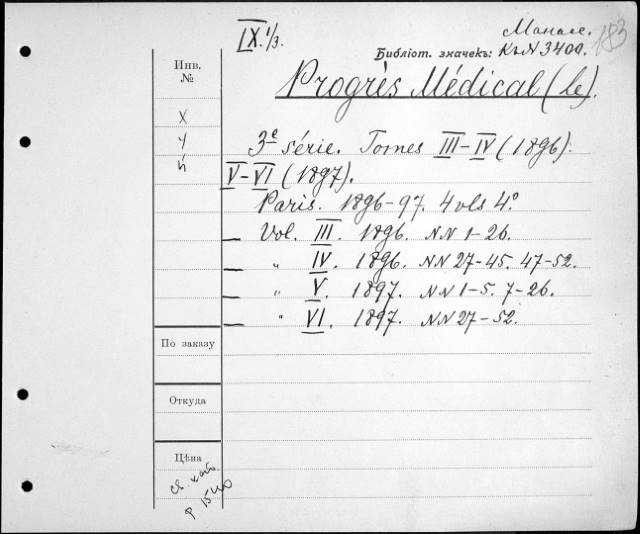 IX.1/3.
Манас.
183
Библіот. значекъ: К.N 3400.
Инв.
№
Progrès Médical (le).
3e série. Tomes III–IV (1896).
V–VI (1897).
Paris. 1896–97. 4 vols 4°.
— Vol. III. 1896. NN 1–26.
— " IV. 1896. NN 27–45. 47–52.
— " V. 1897. NN 1–5. 7–26.
— " VI. 1897. NN 27–52.
По заказу
Откуда
Цѣна